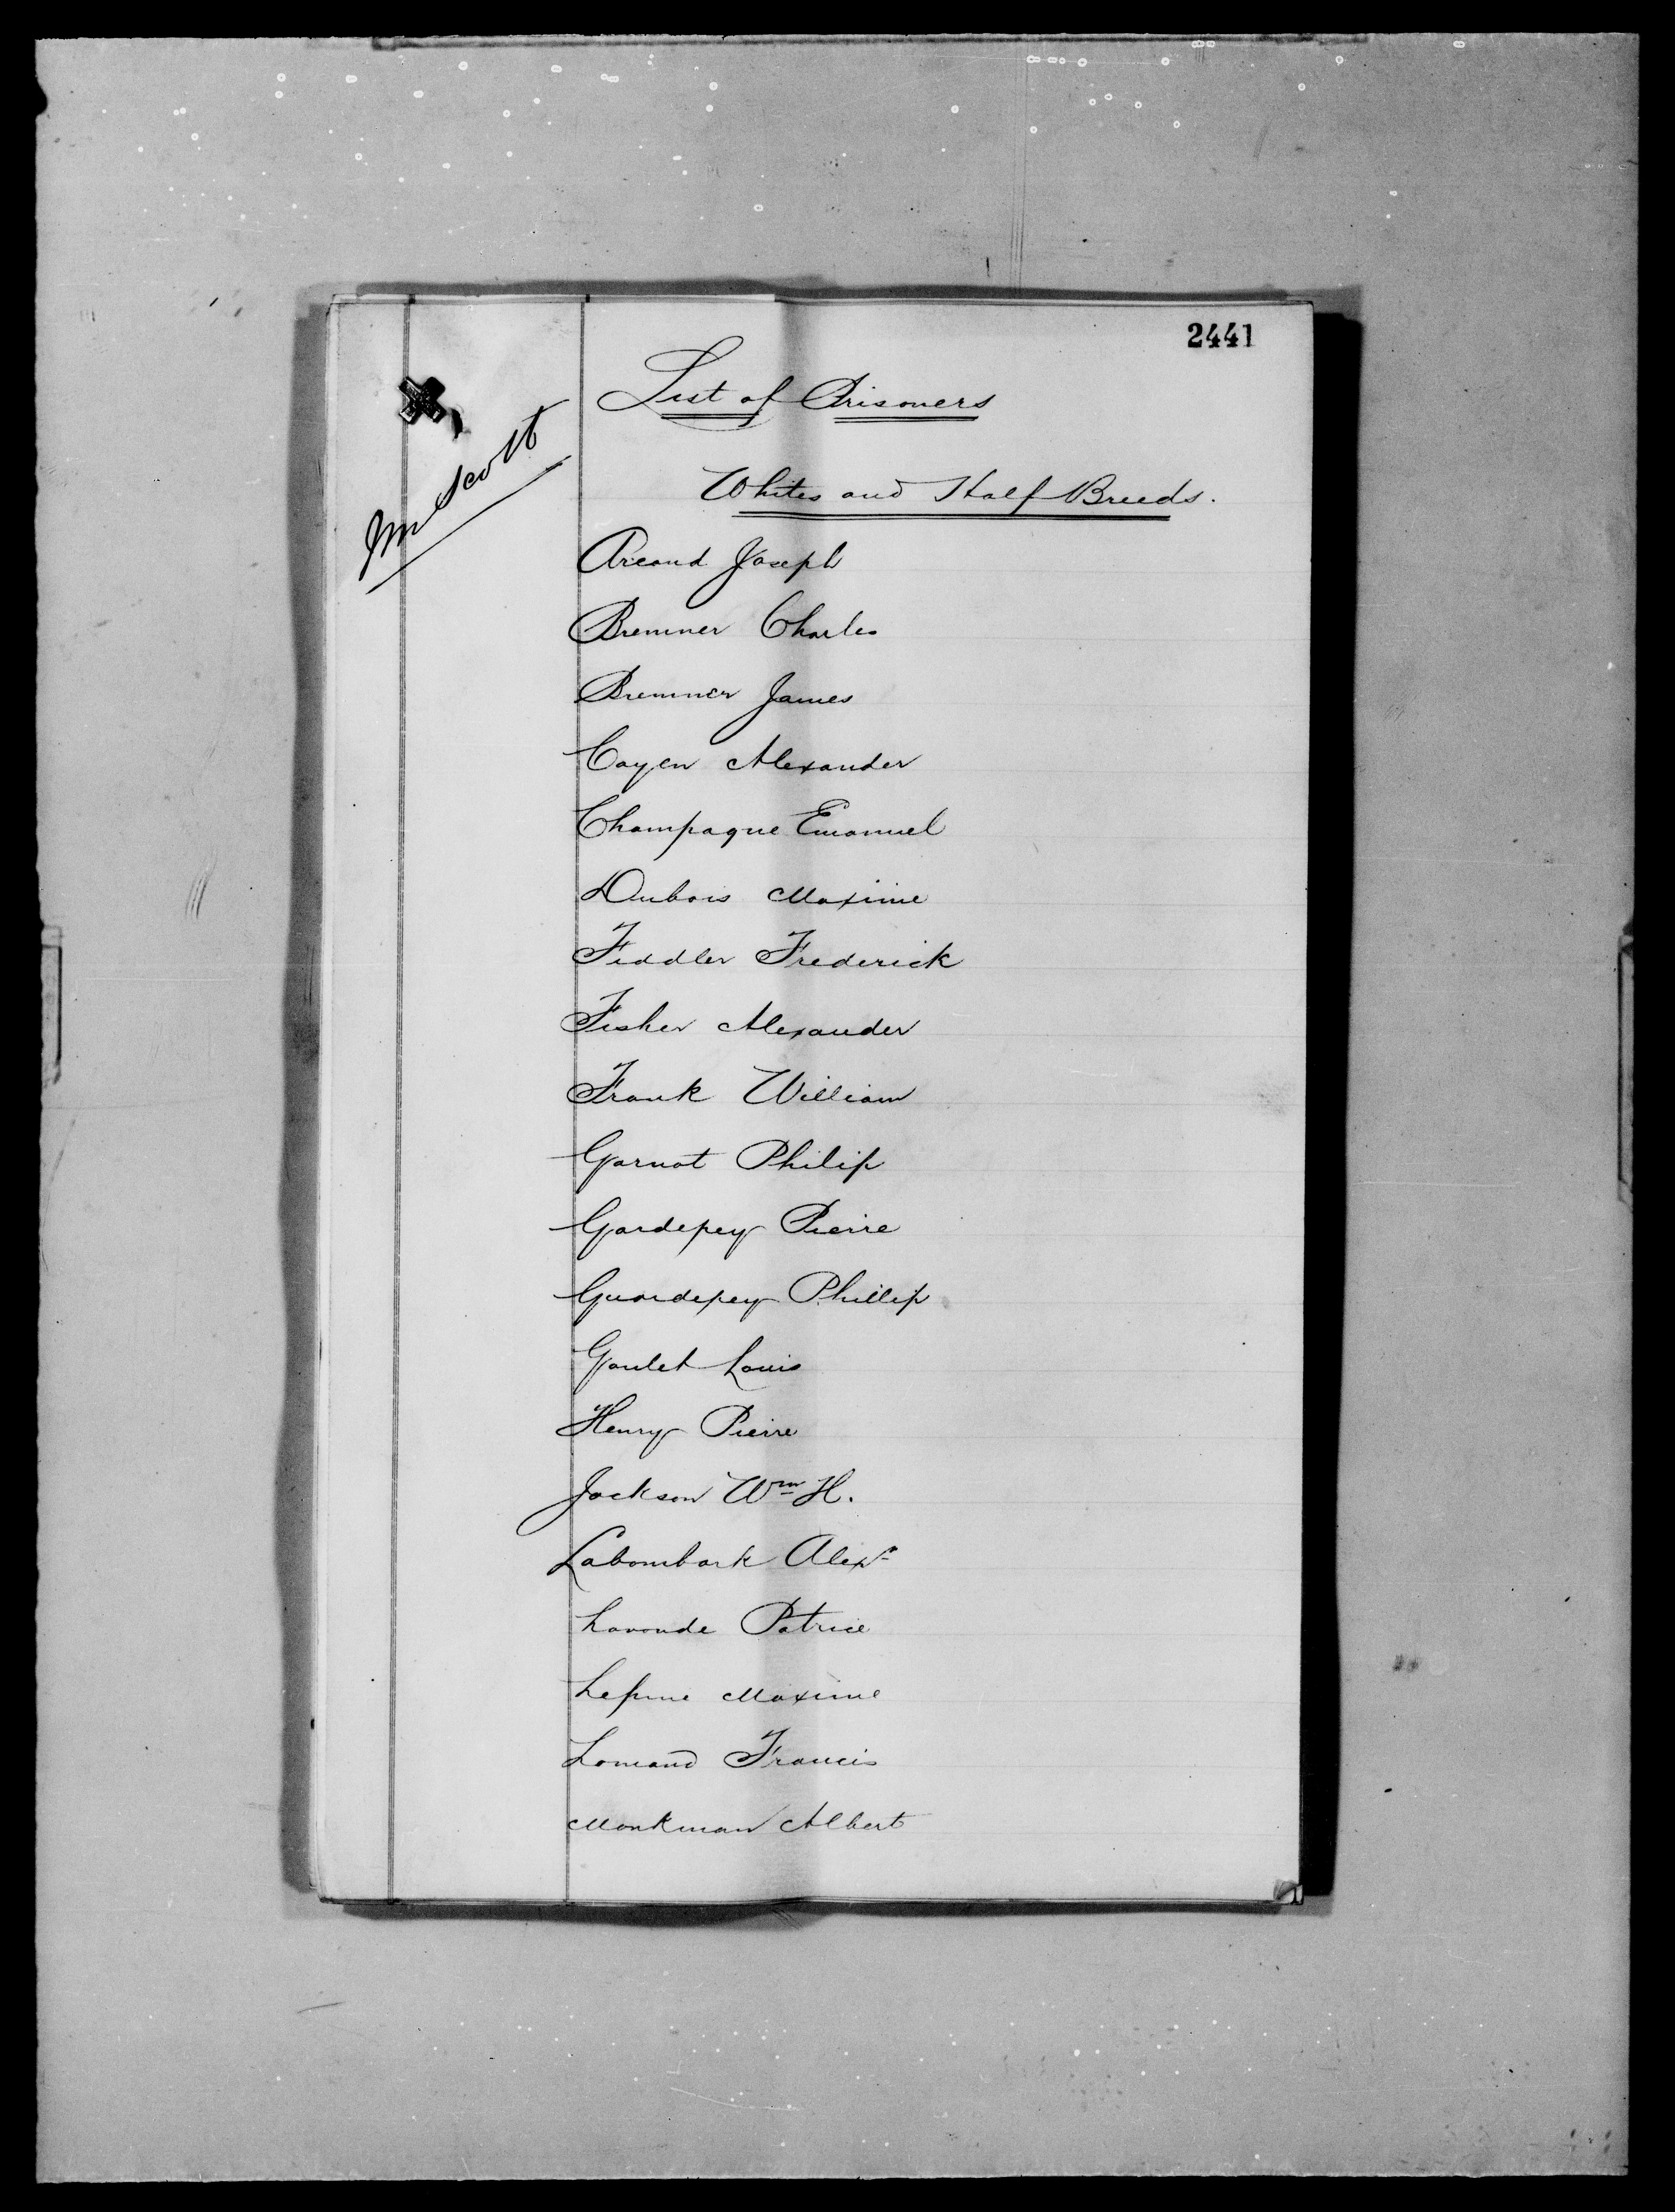 2441
List of Prisoners
Scott
Whites and Half Breeds.
Arcand Joseph
Bremner Charles
Bremner James
Cayen Alexander
Champagne Emanuel
Dubois Maxime
Fiddler Frederick
Fisher Alexander
Frank William
Garnot Philip
Gardepey Pierre
Guardepey Phillip
Goulet Louis
Henry Pierre
Jackson Wm H.
Labombark Alexr
Laronde Patrice
Lepine Maxime
Lomand Francis
Monkman Albert